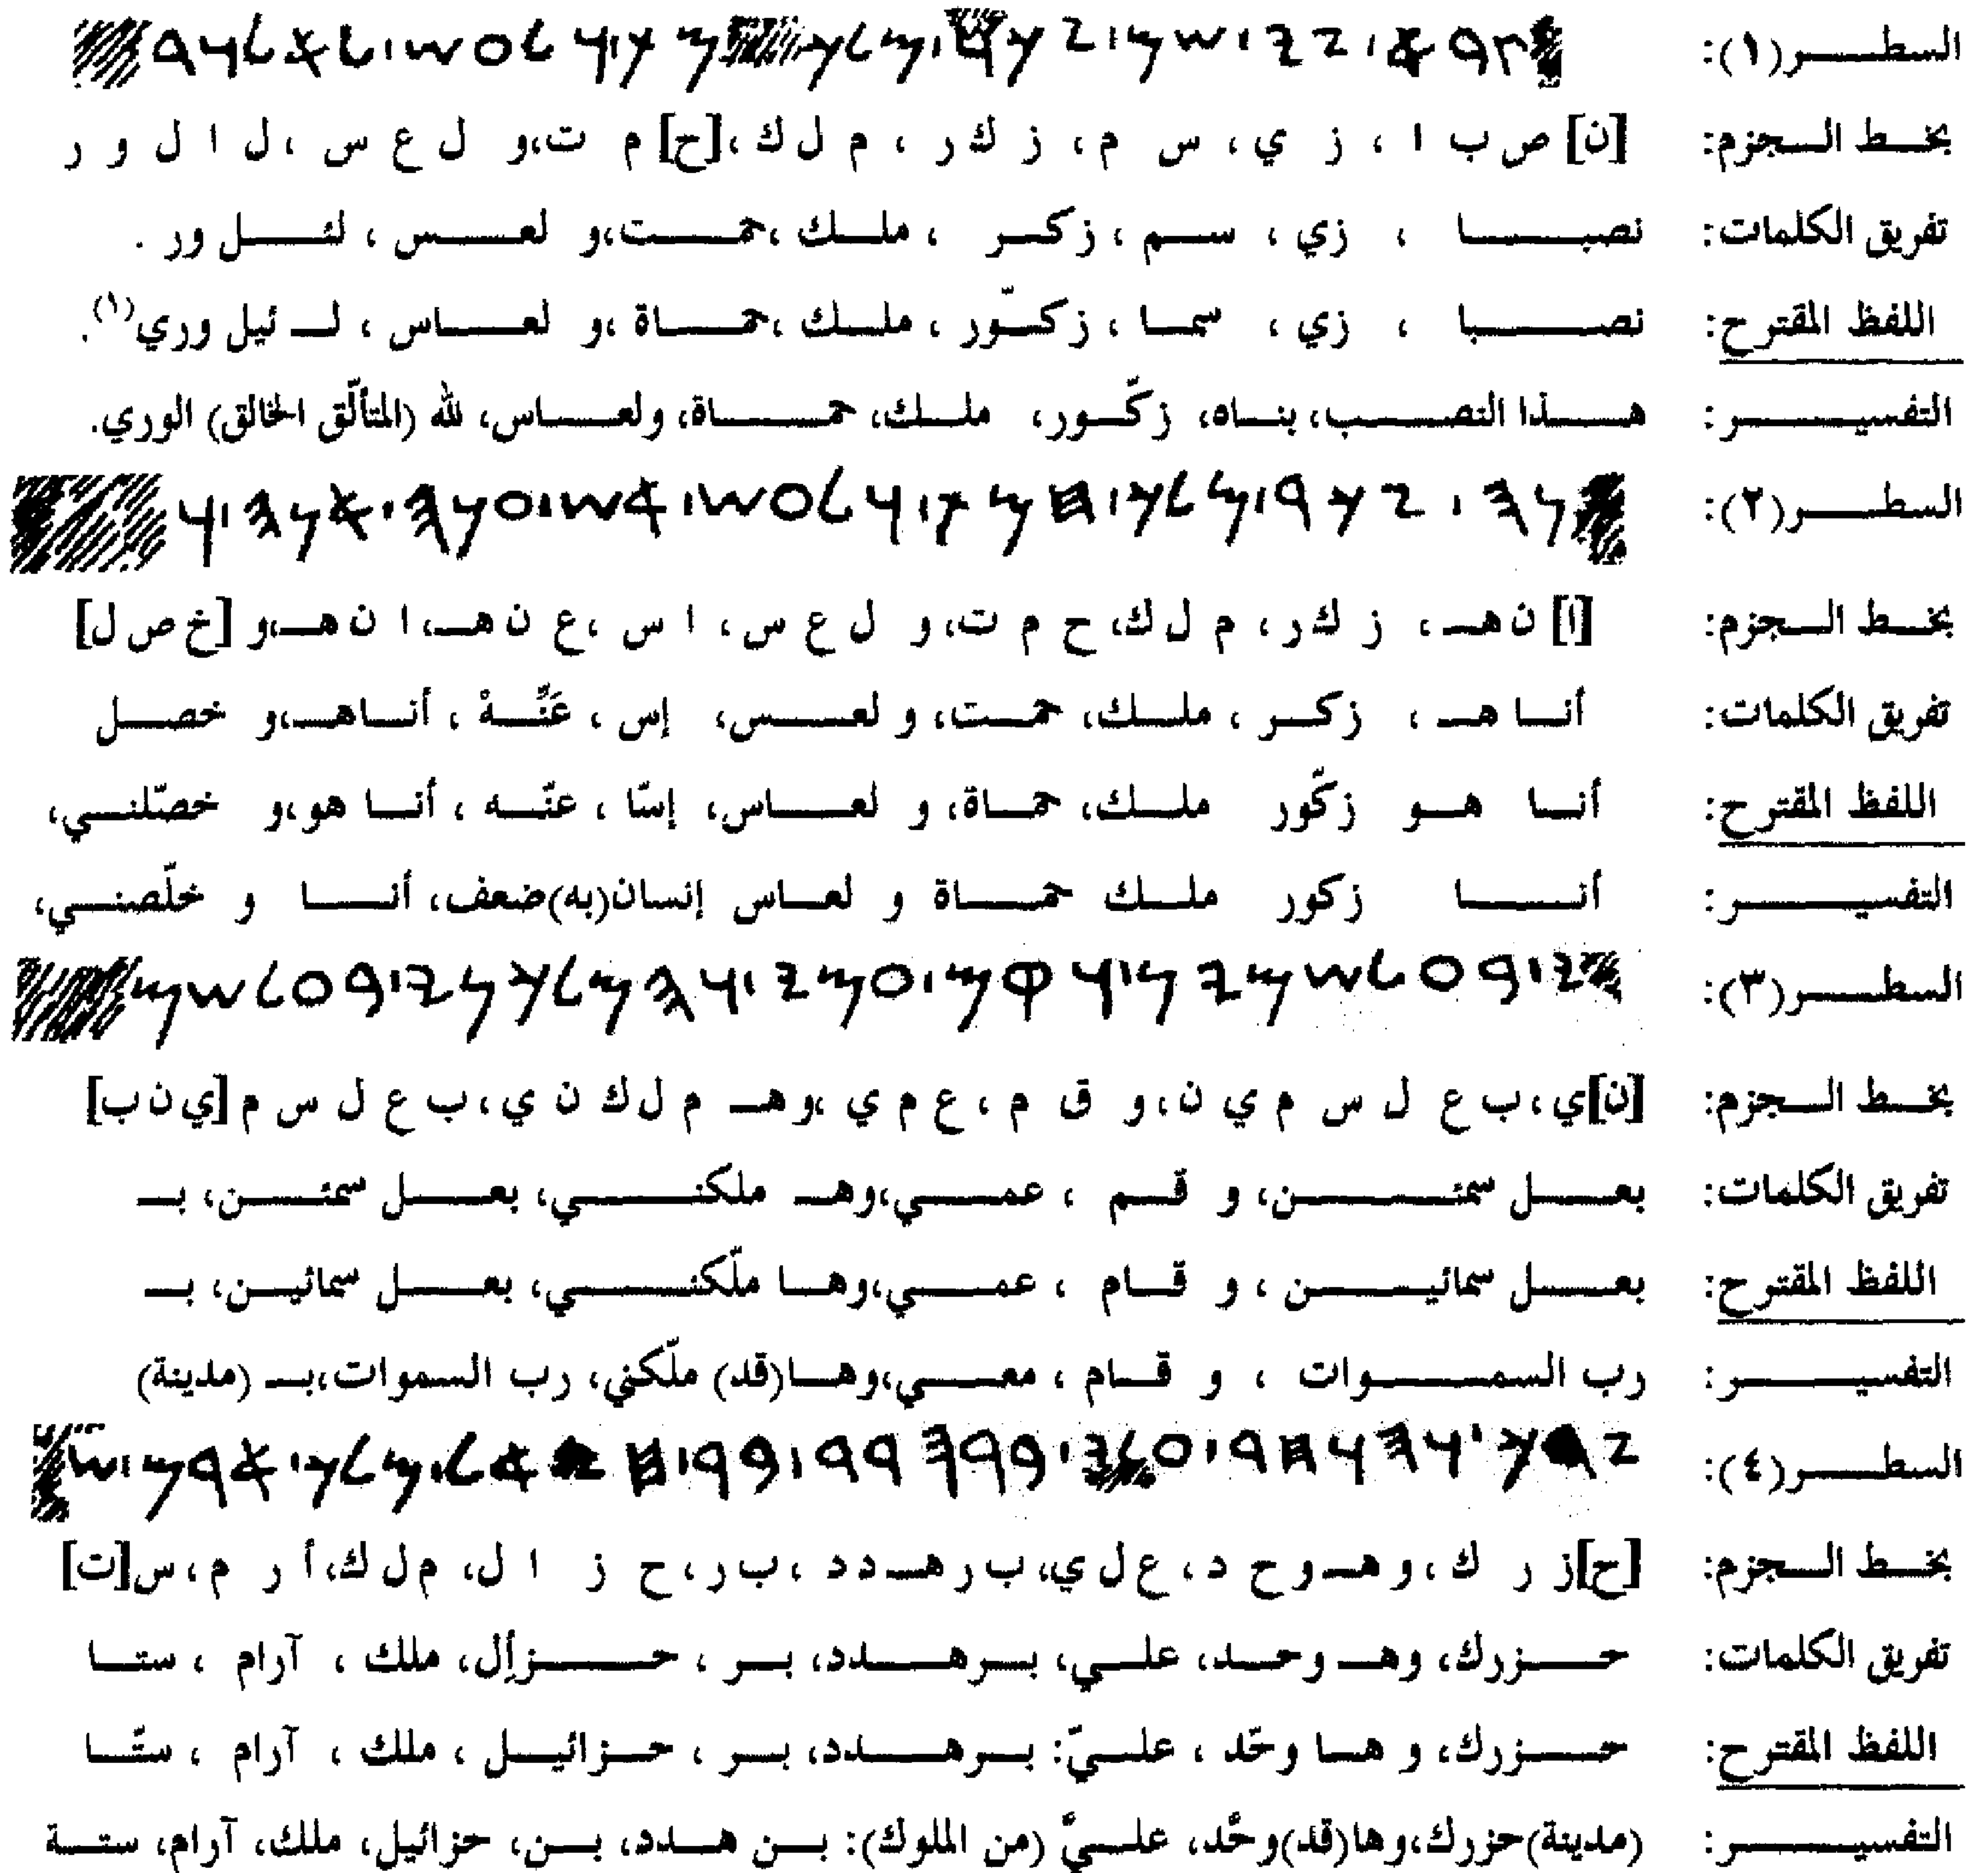 السطر(١): 𐤑𐤁𐤀𐤟𐤆𐤉𐤟𐤔𐤌𐤟𐤆𐤊𐤓𐤟𐤌𐤋𐤊 𐤌𐤕𐤟𐤅𐤋𐤏𐤔𐤟𐤋𐤀𐤋𐤅𐤓
بخط الجزم: [ن] ص ب ا ، ز ي ، س م ، ز ك ر ، م ل ك ،[ح] م ت،و ل ع س ،ل ا ل و ر
تفريق الكلمات: نصبا ، زي ، سم ، زكر ، ملك ،حمت،و لعس ، لئل ور .
اللفظ المقترح: نصبا ، زي ، سما ، زكّور ، ملك ،حماة ،و لعاس ، لـ ئيل وري(١).
التفسير: هذا النصب، بناه، زكّور، ملك، حماة، ولعاس، لله (المتألّق الخالق) الوري.
السطر(٢): 𐤍𐤄𐤟𐤆𐤊𐤓𐤟𐤌𐤋𐤊𐤟𐤇𐤌𐤕𐤟𐤅𐤋𐤏𐤔𐤟𐤀𐤔𐤟𐤏𐤍𐤄𐤟𐤀𐤍𐤄𐤟𐤅
بخط الجزم: [ا] ن هـ ، ز ك ر ، م ل ك، ح م ت،و ل ع س، ا س ،ع ن هـ،ا ن هـ،و [خ ص ل]
تفريق الكلمات: أنا هـ ، زكر ، ملك، حمت، و لعس، إس ، عَنَّهْ ، أناهـ،و خصل
اللفظ المقترح: أنا هو زكّور ملك، حماة، و لعاس، إسّا ، عنّه ، أنا هو،و خصّلني،
التفسير: أنا زكور ملك حماة و لعاس إنسان(به)ضعف، أنا و خلّصني،
السطر(٣): 𐤉𐤟𐤁𐤏𐤋𐤔𐤌𐤉𐤍𐤟𐤅𐤒𐤌𐤟𐤏𐤌𐤉𐤟𐤅𐤄𐤌𐤋𐤊𐤍𐤉𐤟𐤁𐤏𐤋𐤔𐤌
بخط الجزم: [ن]ي،ب ع ل س م ي ن،و ق م ، ع م ي ،وهـ م ل ك ن ي،ب ع ل س م [ي ن ب]
تفريق الكلمات: بعل سمئن، و قم ، عمي،وهـ ملكني، بعل سمئن، بـ
اللفظ المقترح: بعل سمائين ، و قام ، عمي،وها ملّكني، بعل سمائين، بـ
التفسير: رب السموات ، و قام ، معي،وها(قد) ملّكني، رب السموات،بـ (مدينة)
السطر(٤): 𐤆𐤓𐤊𐤟𐤅𐤄𐤅𐤇𐤃𐤟𐤏𐤋𐤉𐤟𐤁𐤓𐤄𐤃𐤃𐤟𐤁𐤓𐤟𐤇𐤆𐤀𐤋𐤟𐤌𐤋𐤊𐤟𐤀𐤓𐤌𐤟𐤔
بخط الجزم: [ح]ز ر ك ،و هـ و ح د ، ع ل ي،ب ر هـ د د ،ب ر، ح ز ا ل، م ل ك،أ ر م ،س[ت]
تفريق الكلمات: حزرك، وهـ وحد، علي، برهدد، بر ، حزأل، ملك ، آرام ، ستا
اللفظ المقترح: حزرك، و ها وحّد ، عليّ: برهدد، بر ، حزائيل ، ملك ، آرام ، ستّا
التفسير: (مدينة)حزرك،وها(قد)وحَّد، عليَّ (من الملوك): بن هدد، بن، حزائيل، ملك، آرام، ستة